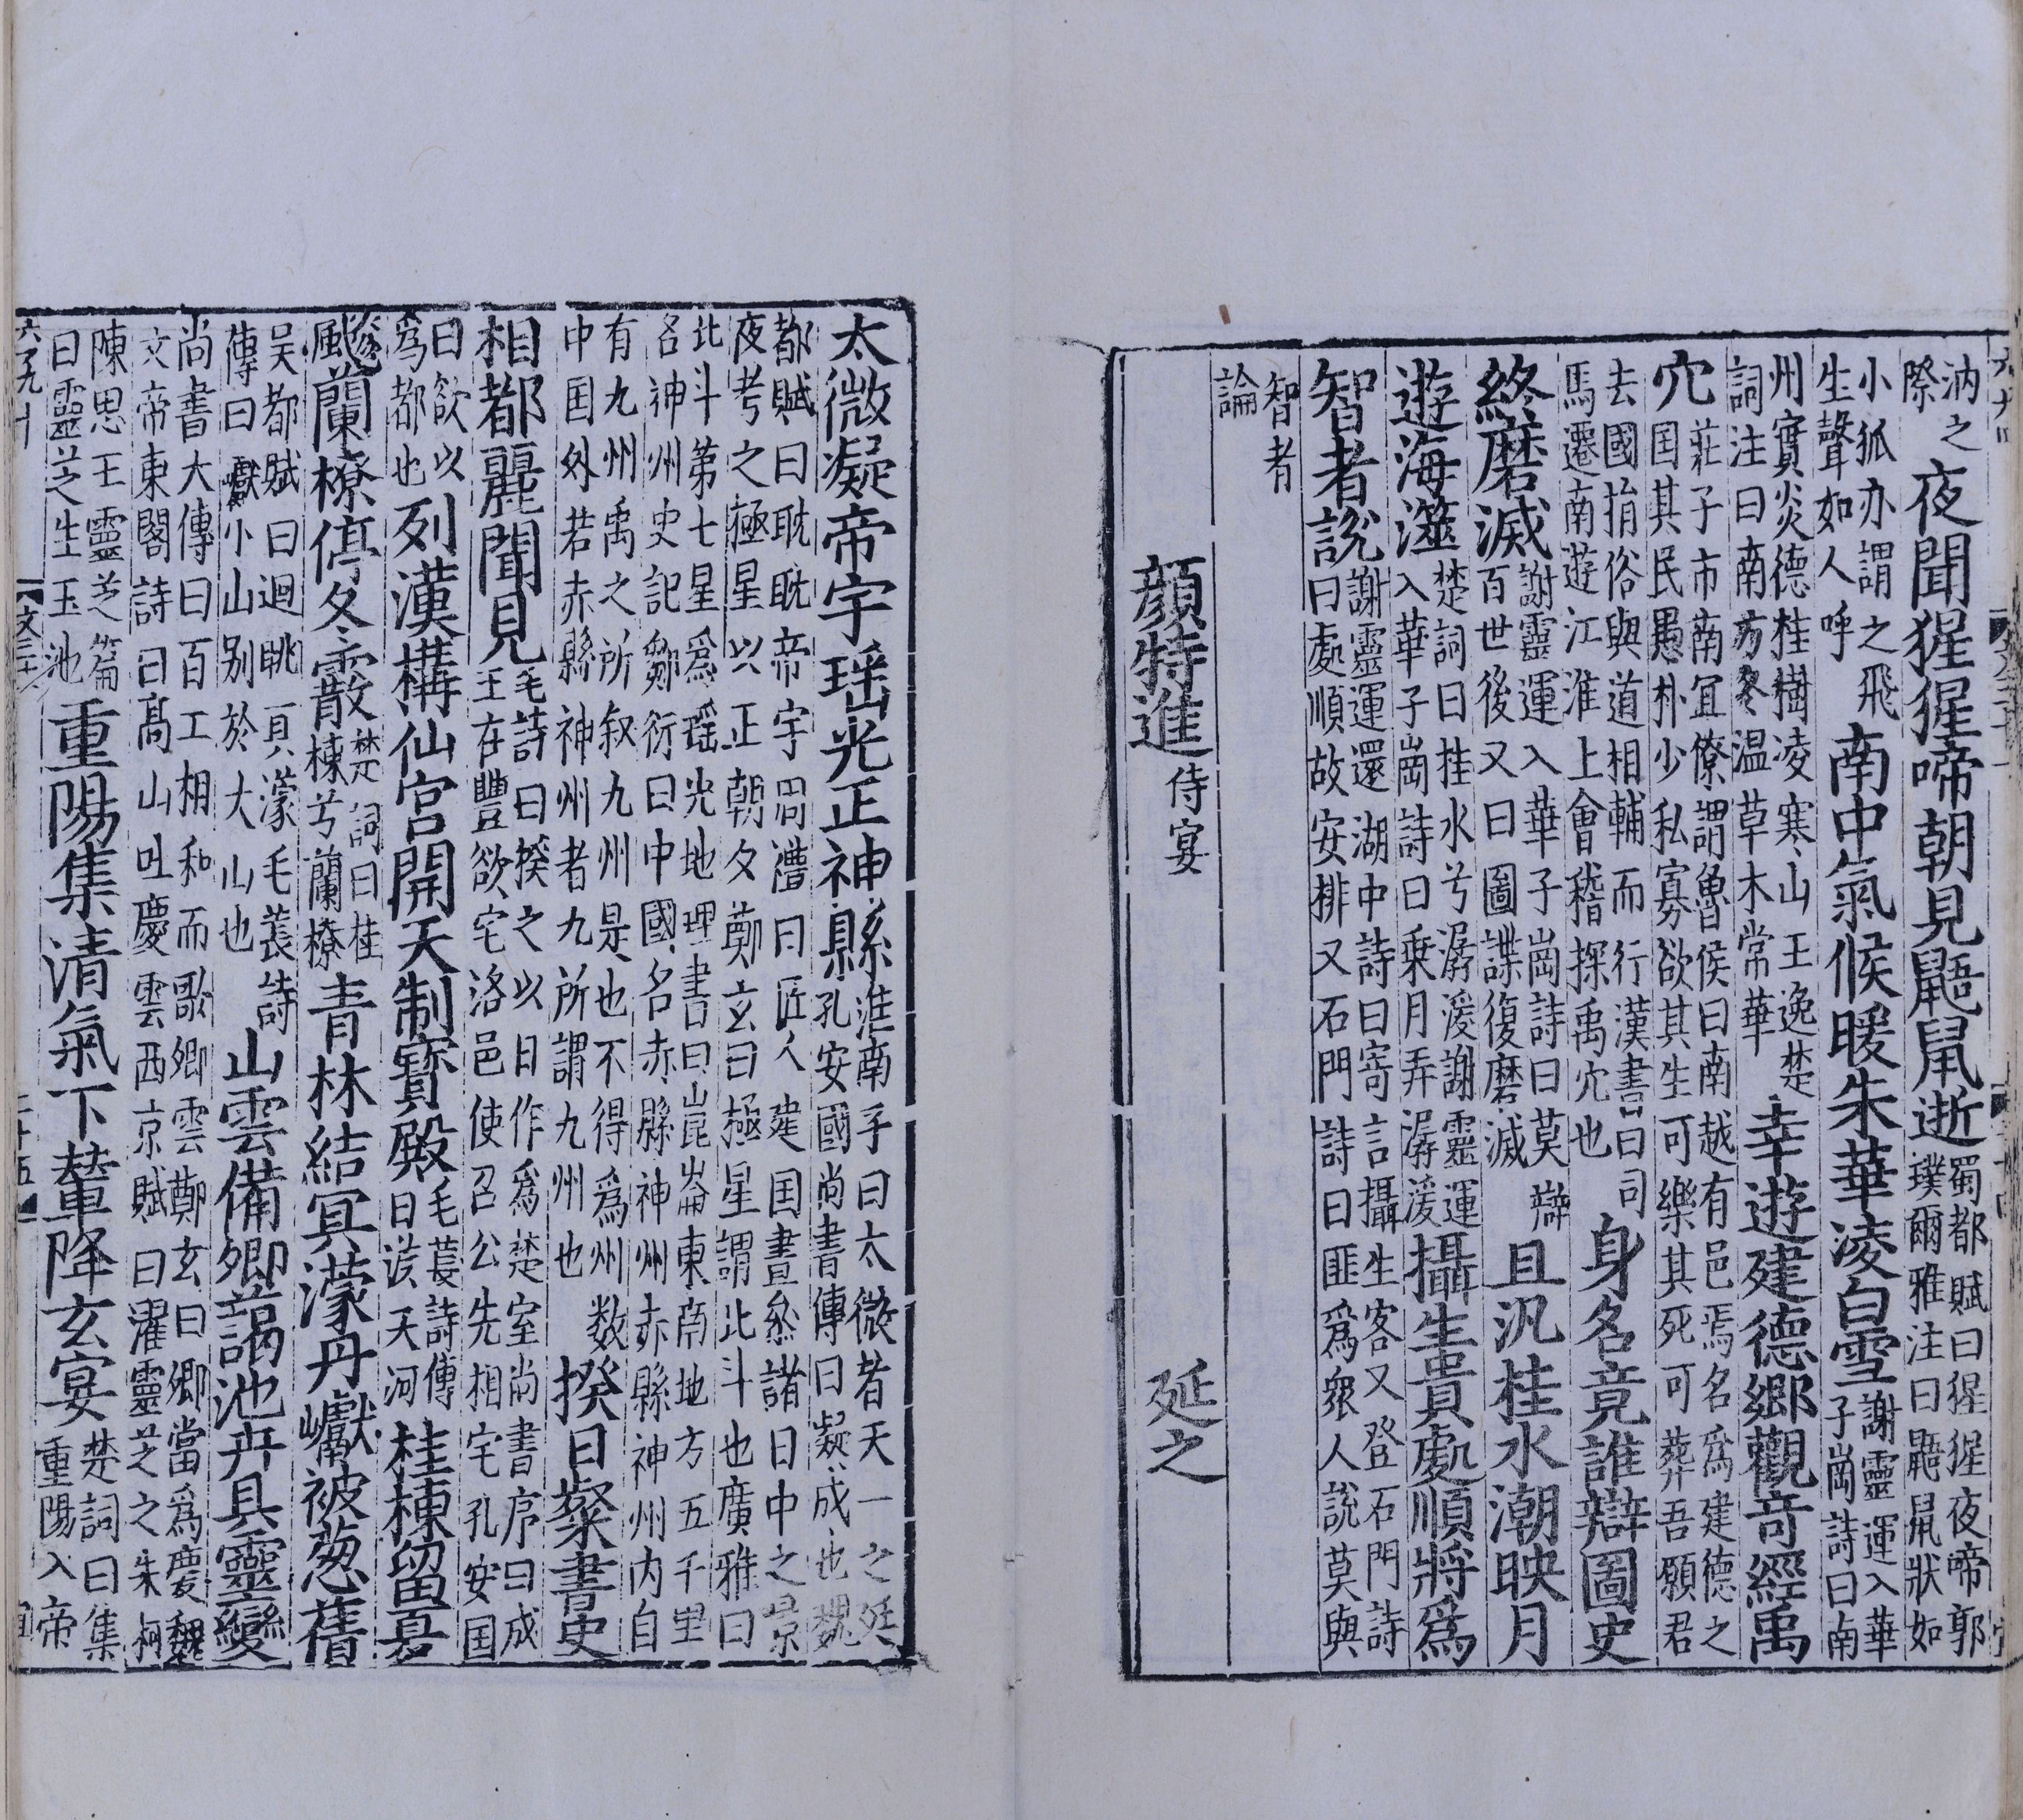 汭之際夜聞猩猩啼朝見鼯鼠逝蜀都賦曰猩猩夜啼郭璞爾雅注曰鼯鼠狀如
小狐亦謂之飛生聲如人呼南中氣候暖朱華凌白雪謝靈運入華子崗詩曰南
州實炎德桂樹凌寒山王逸楚詞注曰南方冬温草木常華幸遊建德鄉觀奇經禹
穴莊子市南宜僚謂魯侯曰南越有邑焉名爲建德之国其民愚朴少私寡欲其生可樂其死可葬吾願君
去國捐俗與道相輔而行漢書曰司馬遷南遊江淮上會稽探禹穴也身名竟誰辯圖史
終磨滅謝靈運入華子崗詩曰莫辯百世後又曰圖諜復磨滅且汎桂水潮映月
遊海澨楚詞曰桂水兮潺湲謝靈運入華子崗詩曰乗月弄潺湲攝生貴處順將爲
智者說謝靈運還湖中詩曰寄言攝生客又登石門詩曰處順故安排又石門詩曰匪爲衆人說莫與
智者論
顏特進侍宴　延之
太微凝帝宇瑶光正神縣淮南子曰太微者天一之廷孔安國尚書傳曰凝成也魏
都賦曰耽耽帝宇周禮曰匠人建国晝叅諸日中之景夜考之極星以正朝夕鄭玄曰極星謂北斗也廣雅曰
北斗第七星爲瑶光地理書曰崐崘東南地方五千里名神州史記鄒衍曰中國名赤縣神州赤縣神州内自
有九州禹之所叙九州是也不得爲州数中国外若赤縣神州者九所謂九州也揆日粲書史
相都麗聞見毛詩曰揆之以日作爲楚室尚書序曰成王在豐欲宅洛邑使召公先相宅孔安国
曰欲以爲都也列漢構仙宫開天制寶殿毛萇詩傳曰漢天河桂棟留夏
飈蘭橑停冬霰楚詞曰桂棟兮蘭橑青林結冥濛丹巘被葱蒨
吳都賦曰迴眺冥濛毛萇詩傳曰巘小山别於大山也山雲備卿藹池卉具靈變
尚書大傳曰百工相和而歌卿雲鄭玄曰卿當爲慶魏文帝東閣詩曰高山吐慶雲西京賦曰濯靈芝之朱柯
陳思王靈芝篇曰靈芝生玉池重陽集清氣下輦降玄宴楚詞曰集重陽入帝